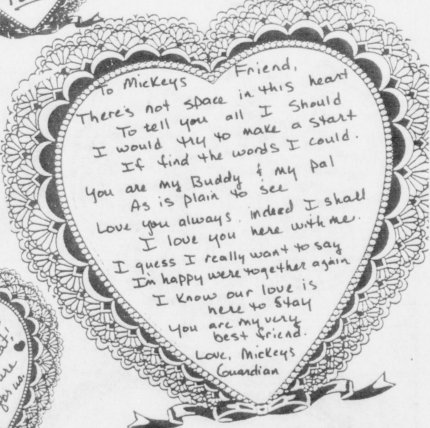 To Mickeys Friend,
There's not space in this heart
To tell you all I should
I would try to make a start
If find the words I could.
You are my Buddy & my pal
As is plain to see
Love you always. Indeed I shall
I love you here with me.
I guess I really want to say
I'm happy were together again
I know our love is
here to stay
You are my very
best friend.
Love, Mickeys
Guardian
for us